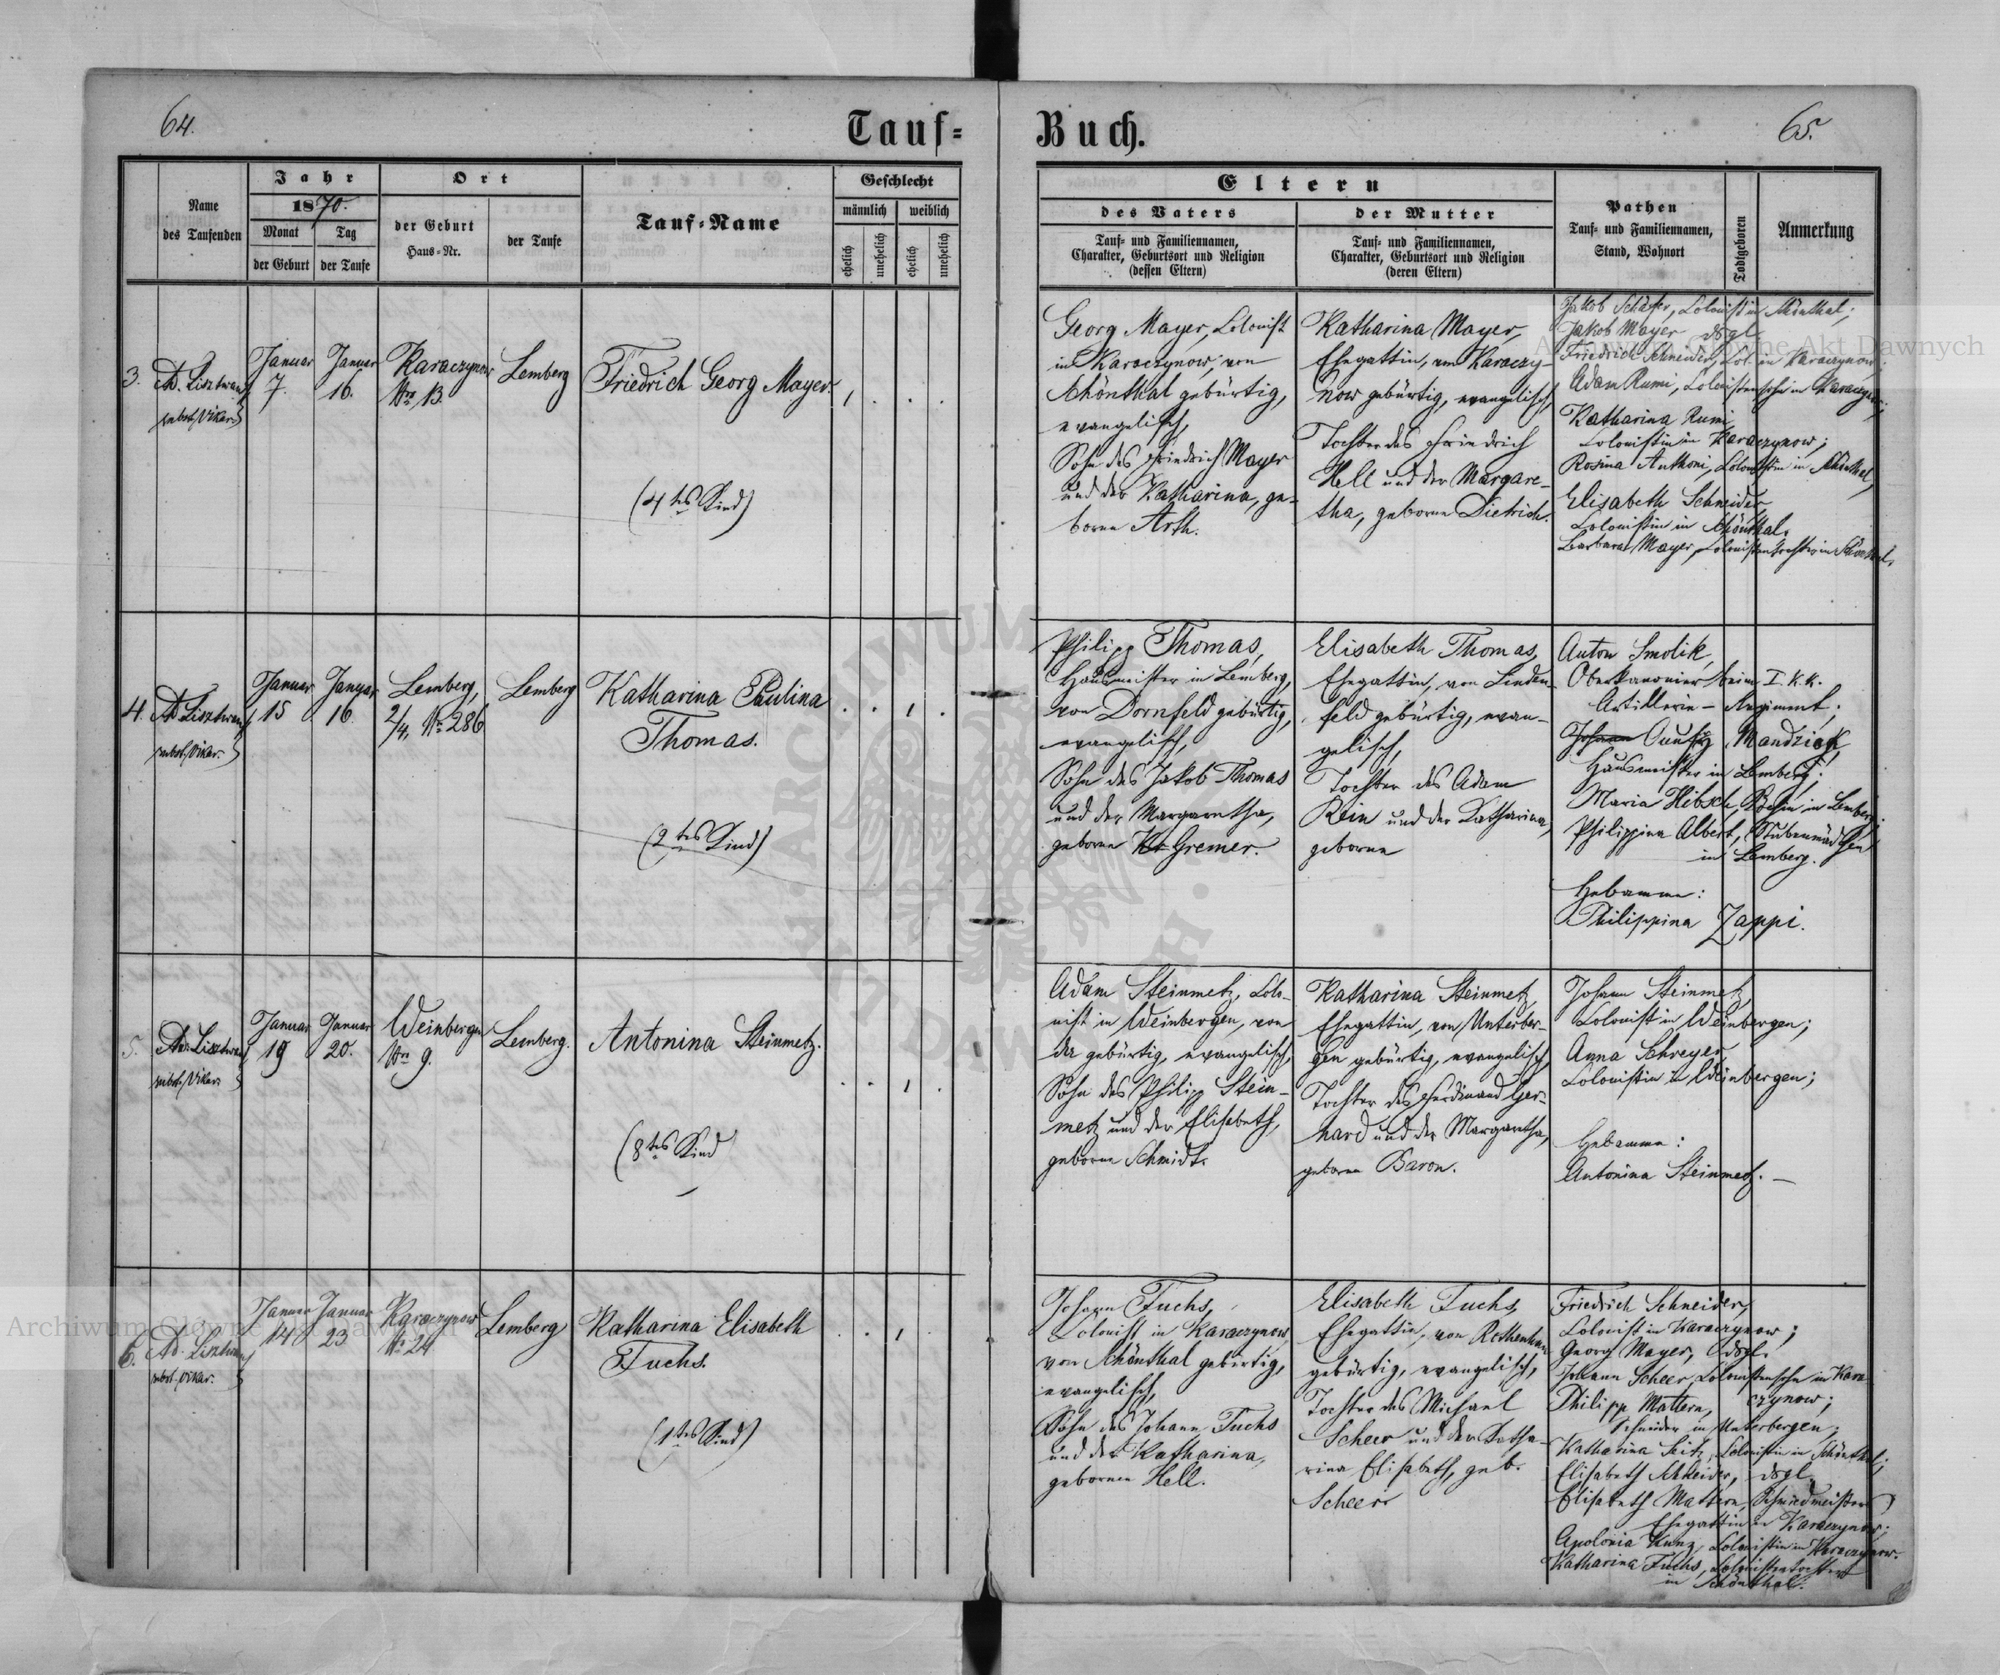 64.
Tauf-
Name
des Taufenden
Jahr
1870.
Monat
Tag
der Geburt
der Taufe
Ort
der Geburt
Haus-Nr.
der Taufe
Tauf-Name
Geschlecht
männlich
weiblich
ehelich
unehelich
ehelich
unehelich
3.
Januar
7.
Januar
16.
Karaczynow
Nro 13.
Lemberg
Friedrich Georg Mayer.
(4tes Kind)
4.
Januar
15
Januar
16.
Lemberg,
2/4, No 286
Lemberg
Katharina Paulina
Thomas.
(2tes Kind)
5.
Januar
19
Januar
20.
Weinbergen
Nro 9.
Lemberg.
Antonina Steinmetz.
(8tes Kind)
6.
Januar
14
Januar
23
Karaczynow
No 24
Lemberg
Katharina Elisabeth
Fuchs.
(1tes Kind)
65.
Buch.
Eltern
des Vaters
Tauf- und Familiennamen,
Charakter, Geburtsort und Religion
(dessen Eltern)
der Mutter
Tauf- und Familiennamen,
Charakter, Geburtsort und Religion
(deren Eltern)
Pathen
Tauf- und Familiennamen,
Stand, Wohnort
Todtgeboren
Anmerkung
Georg Mayer, Colonist
in Karaczynow, von
Schönthal gebürtig,
evangelisch,
Sohn des Friedrich Mayer
und der Katharina, ge-
borne Arth.
Katharina Mayer,
Ehegattin, von Karaczy-
now gebürtig, evangelisch,
Tochter des Friedrich
Hell und der Margare-
tha, geborne Dietrich.
Jakob Schäfer, Colonist in Schönthal;
Jakob Mayer dsgl.
Friedrich Schneider, Col. in Karaczynow;
Adam Rumi, Colonistensohn in Karaczynow;
Katharina Rumi
Colonistin in Karaczynow;
Rosina Anthoni, Colonistin in Schönthal,
Elisabeth Schneider
Colonistin in Schönthal.
Barbara Mayer, Colonistentochter in Schönthal.
Philipp Thomas,
Hausmeister in Lemberg,
von Dornfeld gebürtig,
evangelisch,
Sohn des Jakob Thomas
und der Margaretha,
geborne Gremer.
Elisabeth Thomas,
Ehegattin, von Linden-
feld gebürtig, evan-
gelisch,
Tochter des Adam
Rein und der Katharina,
geborne
Anton Smolik,
Oberkanonier beim I. k.k.
Artillerie-Regiment;
Mandziak
Hausmeister in Lemberg;
Maria Hibsch, Köchin in Lemberg;
Philippina Albert, Stubenmädchen
in Lemberg.
Hebamme:
Philippina Zappi.
Adam Steinmetz, Colo-
nist in Weinbergen, von
da gebürtig, evangelisch,
Sohn des Philipp Stein-
metz und der Elisabeth,
geborne Schmidt.
Katharina Steinmetz,
Ehegattin, von Unterber-
gen gebürtig, evangelisch,
Tochter des Ferdinand Ger-
hard und der Margaretha,
geborne Baron.
Johann Steinmetz,
Colonist in Weinbergen;
Anna Schreyer,
Colonistin in Weinbergen;
Hebamme:
Antonina Steinmetz. —
Johann Fuchs,
Colonist in Karaczynow,
von Schönthal gebürtig,
evangelisch,
Sohn des Johann Fuchs
und der Katharina,
gebornen Hell.
Elisabeth Fuchs,
Ehegattin, von
gebürtig, evangelisch,
Tochter des Michael
Scheer und der Katha-
rina Elisabeth, geb.
Scheer
Friedrich Schneider,
Colonist in Karaczynow;
Georg Mayer, dsgl.
Johann Scheer, Colonistensohn in Kara-
czynow;
Philipp Mattern,
Schneider in Unterbergen;
Katharina Seitz, Colonistin in Schönthal;
Elisabeth Schneider, dsgl.
Elisabeth Mattern, Schmiedmeisters
Ehegattin in Karaczynow;
Apolonia Kunz, Colonistin in Karaczynow.
Katharina Fuchs, Colonistentochter
in Schönthal.
Archiwum Główne Akt Dawnych
Archiwum Główne Akt Dawnych